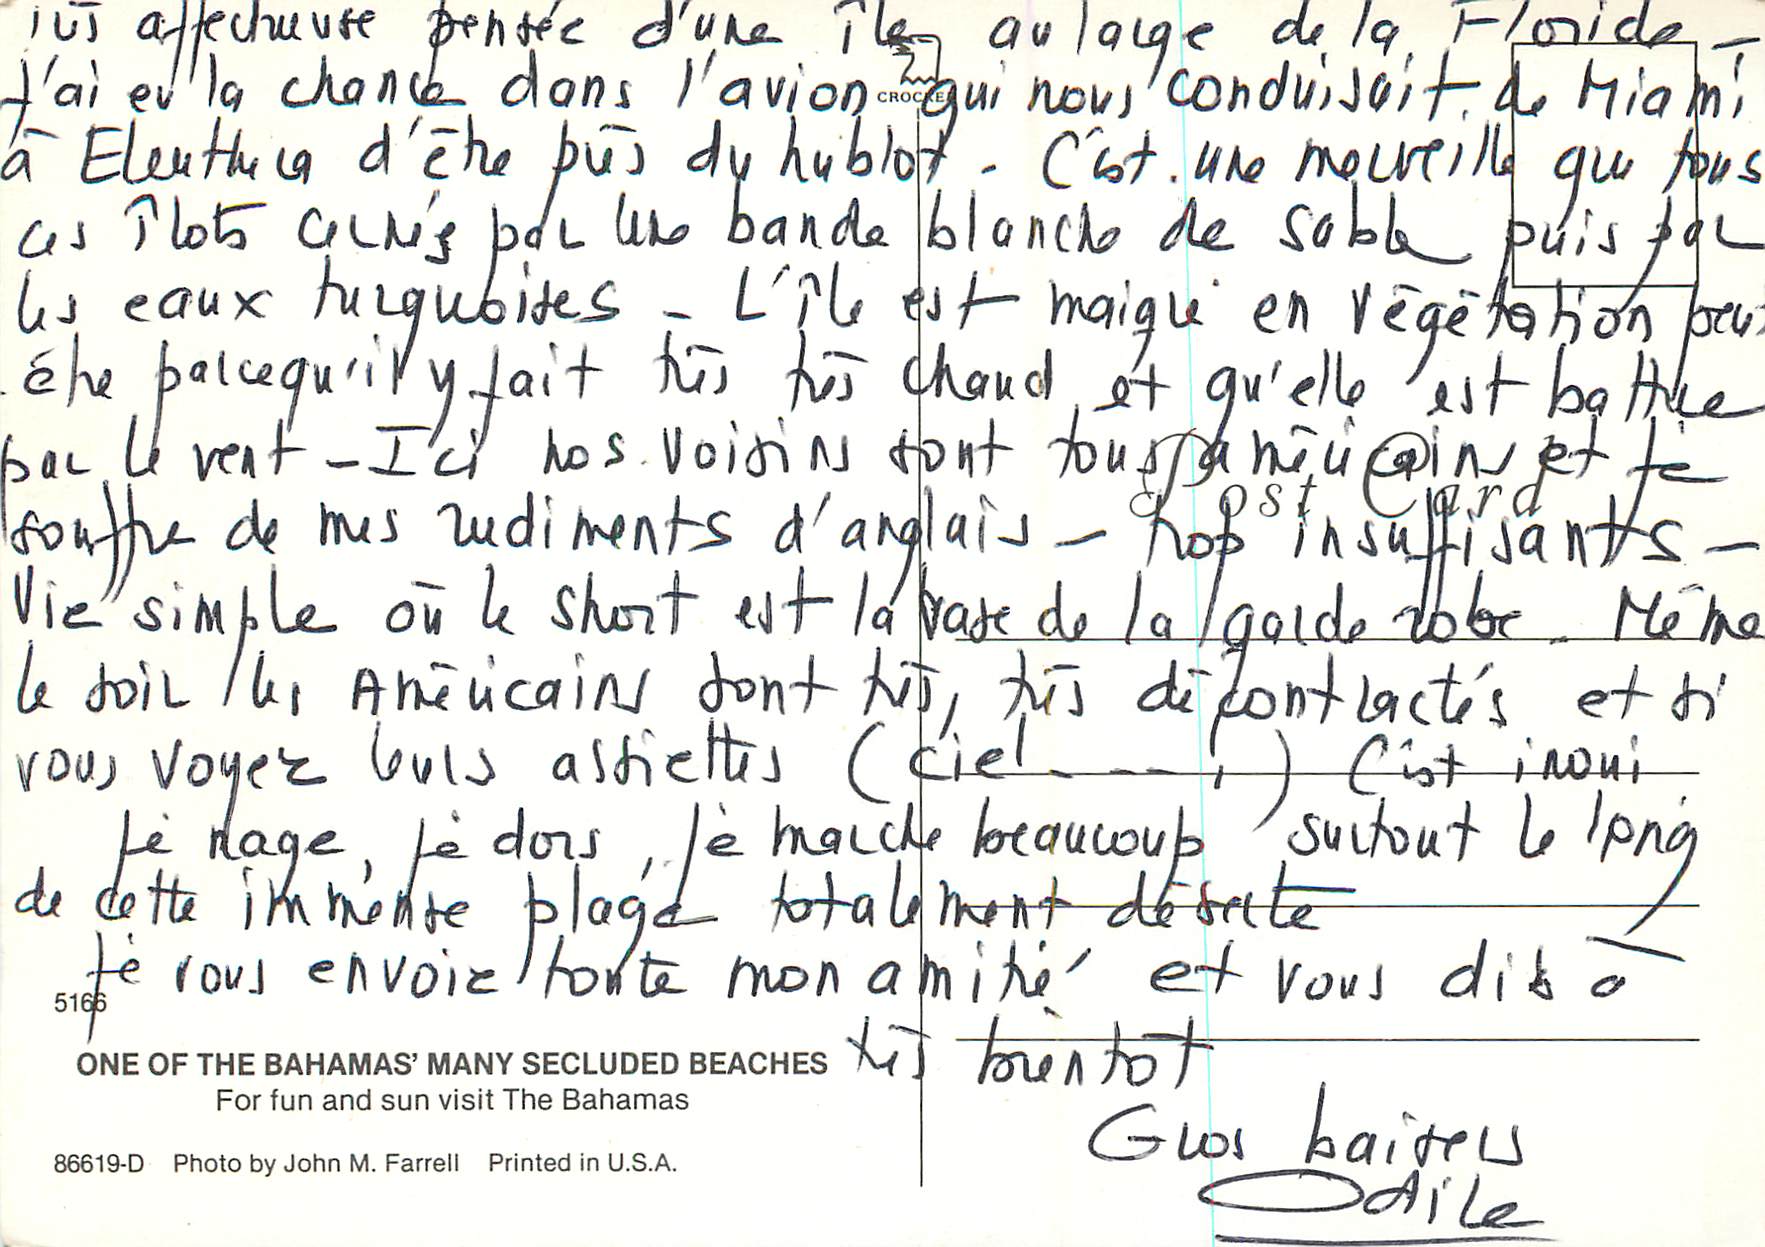 très affectueuse pensée d'une île au large de la Floride –
J'ai eu la chance dans l'avion qui nous conduisait de Miami
à Eleuthera d'être près du hublot - C'est une merveille que tous
ces îlots cernés par une bande blanche de sable puis par
les eaux turquoises - L'île est maigre en végétation peut
être parcequ'il y fait très très chaud et qu'elle est battue
par le vent - Ici nos voisins sont tous américains et je
souffre de mes rudiments d'anglais - trop insuffisants -
Vie simple où le short est la base de la garde robe - Même
le soir les Américains sont très, très décontractés et si
vous voyez leurs assiettes (ciel - - - - !) C'est inoui
Je nage, je dors, je marche beaucoup surtout le long
de cette immense plage totalement déserte
Je vous envoie toute mon amitié et vous dis à
très bientôt
Gros baisers
Odile
CROCKER
Post Card
5166
ONE OF THE BAHAMAS' MANY SECLUDED BEACHES
For fun and sun visit The Bahamas
86619-D Photo by John M. Farrell Printed in U.S.A.